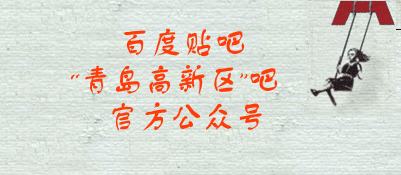 百度贴吧
“青岛高新区”吧
官方公众号